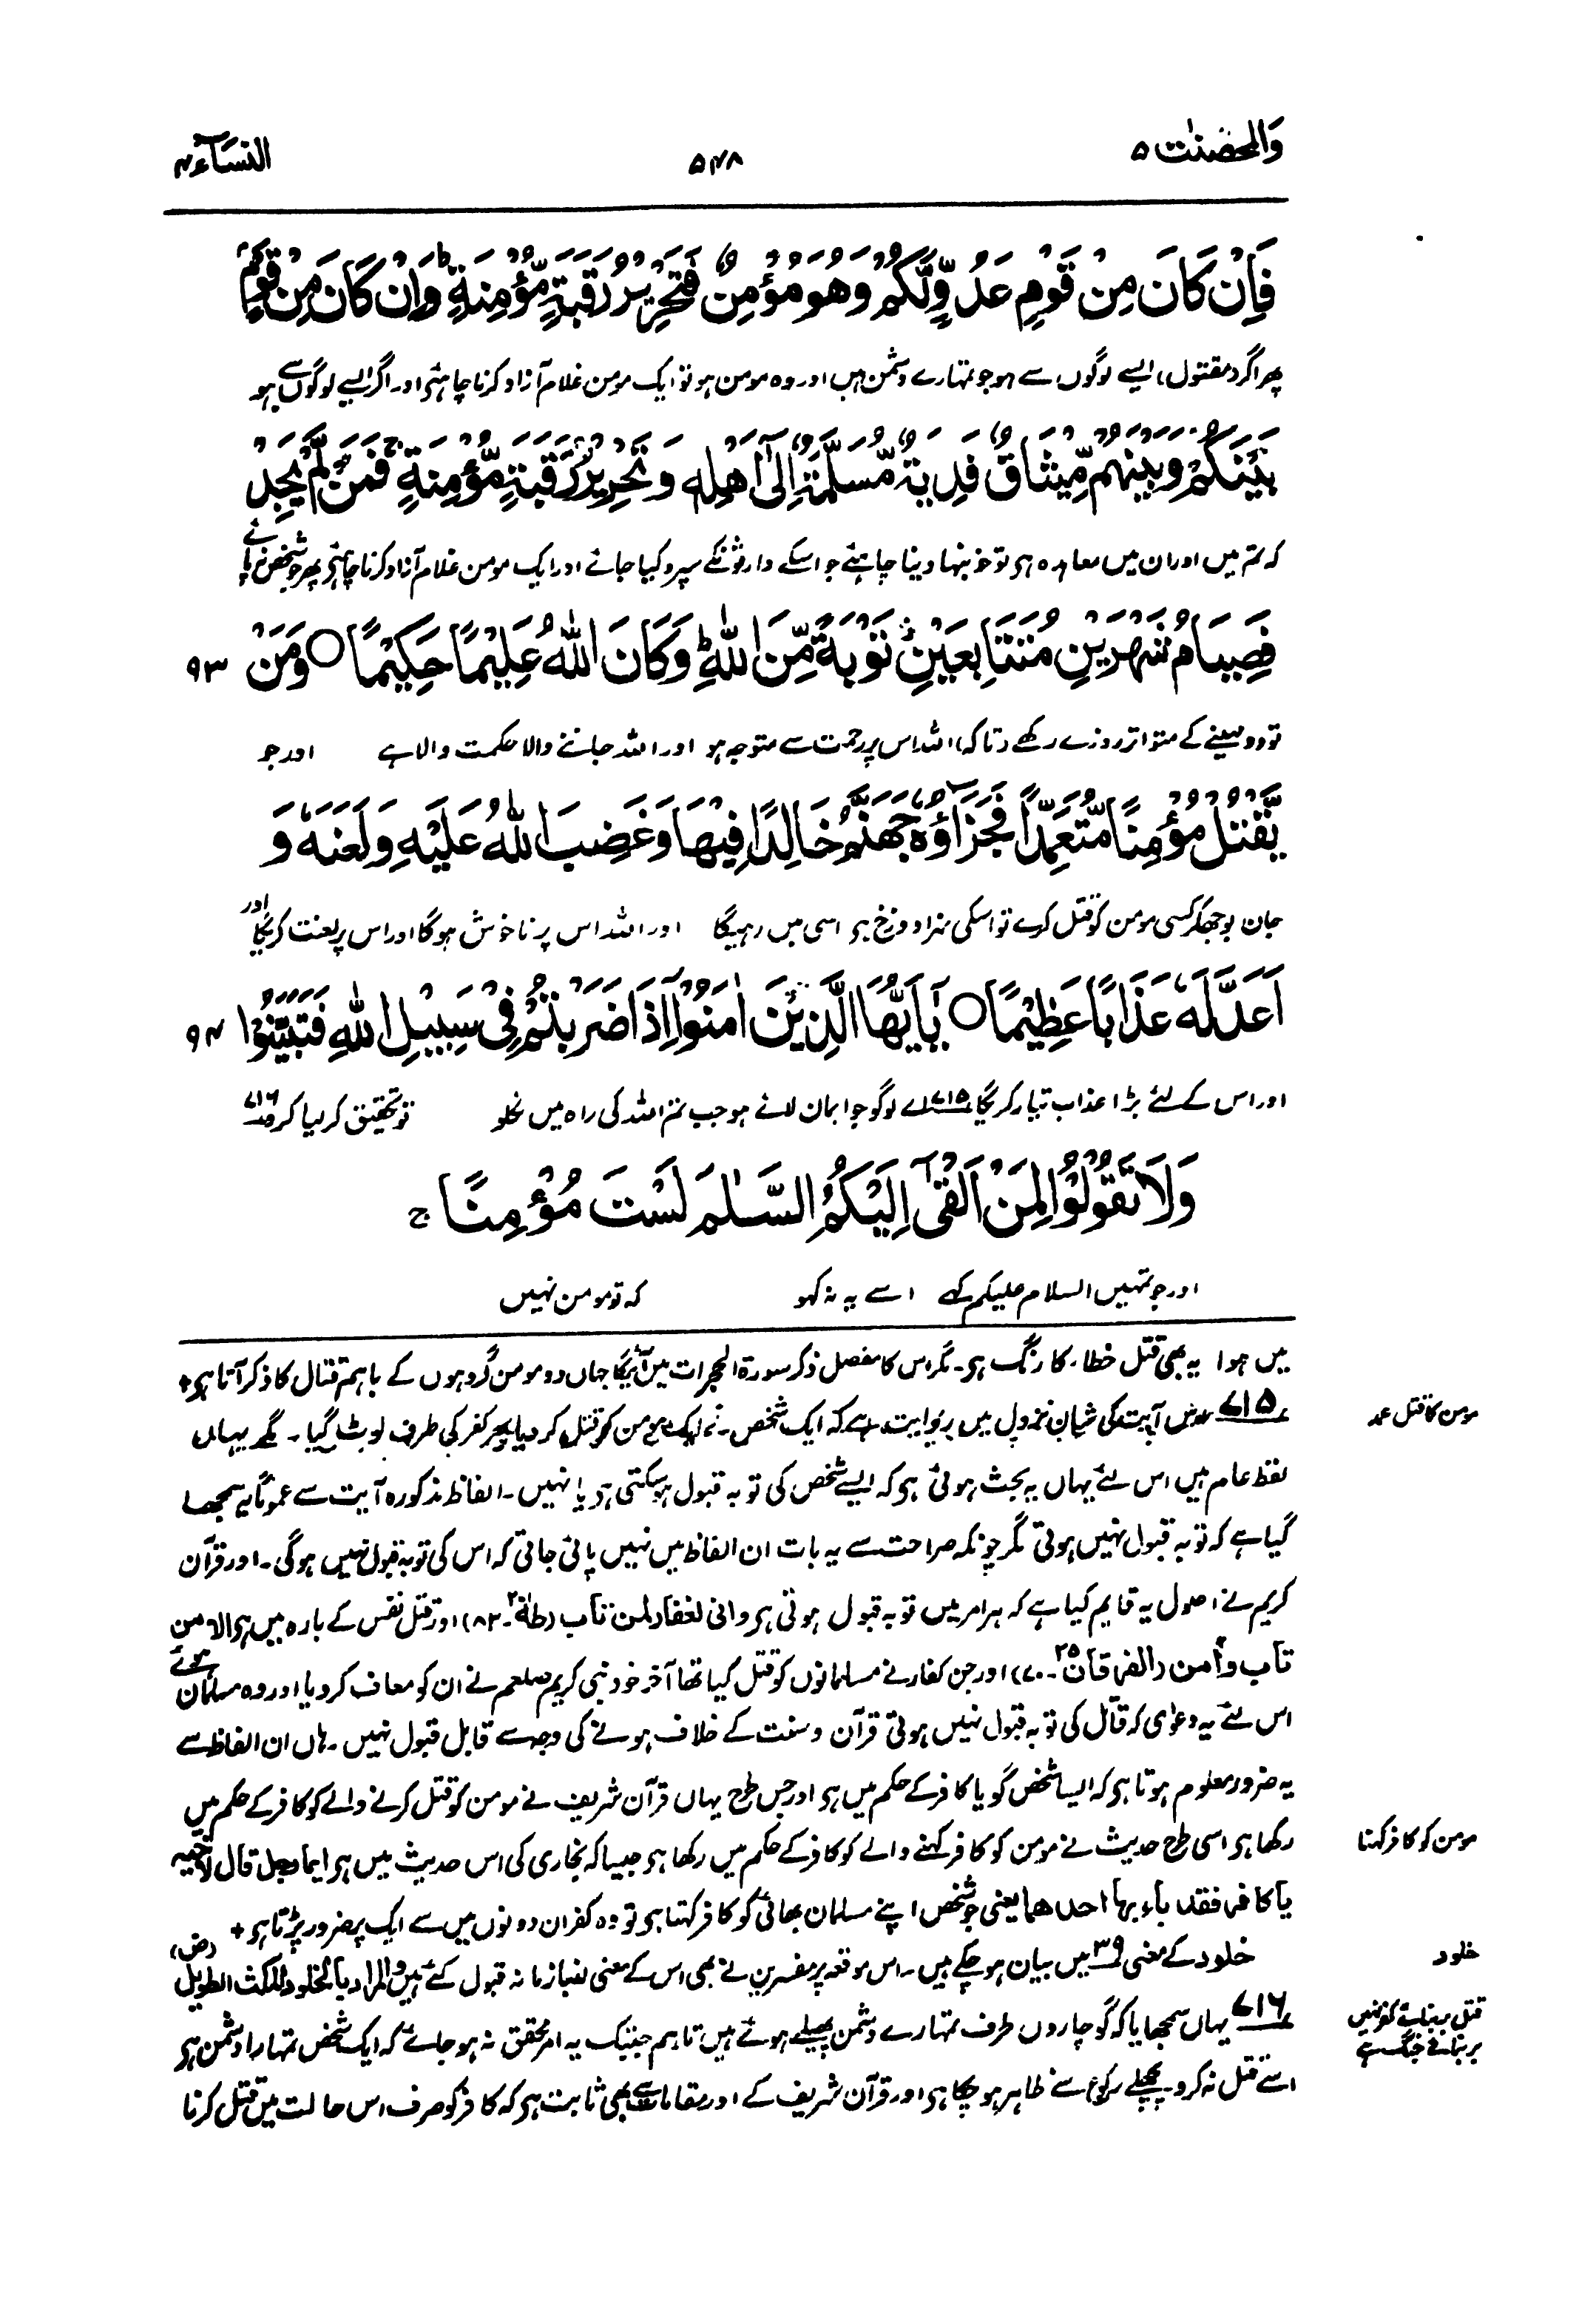 والمحصنت ۵
۵۴۸
النساء ۴
فَاِنْ كَانَ مِنْ قَوْمٍ عَدُوٍّ لَّكُمْ وَهُوَ مُؤْمِنٌ فَتَحْرِيْرُ رَقَبَةٍ مُّؤْمِنَةٍ ؕ وَاِنْ كَانَ مِنْ قَوْمٍۭ
پھر اگر (مقتول) ایسے لوگوں سے ہو جو تمہارے دشمن ہیں اور وہ مومن ہو تو ایک مومن غلام آزاد کرنا چاہئے اور اگر ایسے لوگوں سے ہو
بَيْنَكُمْ وَبَيْنَهُمْ مِّيْثَاقٌ فَدِيَةٌ مُّسَلَّمَةٌ اِلٰٓى اَهْلِهٖ وَتَحْرِيْرُ رَقَبَةٍ مُّؤْمِنَةٍ ۚ فَمَنْ لَّمْ يَجِدْ
کہ تم میں اور ان میں معاہدہ ہو تو خونبہا دینا چاہئے جو اسکے وارثونکے سپرد کیا جائے اور ایک مومن غلام آزاد کرنا چاہئے پھر جو شخص نہ پائے
فَصِيَامُ شَهْرَيْنِ مُتَتَابِعَيْنِ ؗ تَوْبَةً مِّنَ اللّٰهِ ؕ وَكَانَ اللّٰهُ عَلِيْمًا حَكِيْمًا ○ وَمَنْ ۹۳
تو دو مہینے کے متواتر روزے رکھے (تاکہ) اللہ اس پر رحمت سے متوجہ ہو اور اللہ جاننے والا حکمت والا ہے اور جو
يَّقْتُلْ مُؤْمِنًا مُّتَعَمِّدًا فَجَزَآؤُهٗ جَهَنَّمُ خَالِدًا فِيْهَا وَغَضِبَ اللّٰهُ عَلَيْهِ وَلَعَنَهٗ وَ
جان بوجھکر کسی مومن کو قتل کرے تو اسکی سزا دوزخ ہے اسی میں رہیگا اور اللہ اس پر ناخوش ہوگا اور اس پر لعنت کریگا اور
اَعَدَّ لَهٗ عَذَابًا عَظِيْمًا ○ يٰٓاَيُّهَا الَّذِيْنَ اٰمَنُوْٓا اِذَا ضَرَبْتُمْ فِيْ سَبِيْلِ اللّٰهِ فَتَبَيَّنُوْا ۹۴
اور اس کے لئے بڑا عذاب تیار کریگا ۷۱۵ اے لوگو جو ایمان لائے ہو جب تم اللہ کی راہ میں نکلو تو تحقیق کر لیا کرو ۷۱۶
وَلَا تَقُوْلُوْا لِمَنْ اَلْقٰٓى اِلَيْكُمُ السَّلٰمَ لَسْتَ مُؤْمِنًا ۚ
اور جو تمہیں السلام علیکم کہے اسے یہ نہ کہو کہ تو مومن نہیں
میں ہوا یہ بھی قتل خطا کا رنگ ہی۔ مگر اس کا مفصل ذکر سورۃ الحجرات میں آئیگا جہاں دو مومن گروہوں کے باہم قتال کا ذکر آتا ہی +
۷۱۵ اس آیت کی شان نزول میں روایت ہے کہ ایک شخص نے ایک مومن کو قتل کر دیا پھر کفر کی طرف لوٹ گیا۔ مگر یہاں
مومن کا قتل عمد
لفظ عام ہیں اس لئے یہاں یہ بحث ہوئی ہی کہ ایسے شخص کی توبہ قبول ہوسکتی ہی یا نہیں۔ الفاظ مذکورہ آیت سے عموماً یہ سمجھا
گیا ہے کہ توبہ قبول نہیں ہوتی مگر چونکہ صراحت سے یہ بات ان الفاظ میں نہیں پائی جاتی کہ اس کی توبہ قبول نہیں ہوگی۔ اور قرآن
کریم نے اصول یہ قایم کیا ہے کہ ہر امر میں توبہ قبول ہوتی ہی وانی لغفار لمن تاب (طٰہٰ ۲۰۔۸۲) اور قتل نفس کے بارہ میں ہی الا من
تاب وآمن (الفرقان ۲۵۔۷۰) اور جن کفار نے مسلمانوں کو قتل کیا تھا آخر خود نبی کریم صلعم نے ان کو معاف کردیا اور وہ مسلمان ہوئے
اس لئے یہ دعوٰی کہ قاتل کی توبہ قبول نہیں ہوتی قرآن و سنت کے خلاف ہونے کی وجہ سے قابل قبول نہیں۔ ہاں ان الفاظ سے
یہ ضرور معلوم ہوتا ہی کہ ایسا شخص گویا کافر کے حکم میں ہی اور جس طرح یہاں قرآن شریف نے مومن کو قتل کرنے والے کو کافر کے حکم میں
رکھا ہی اسی طرح حدیث نے مومن کو کافر کہنے والے کو کافر کے حکم میں رکھا ہی جیسا کہ بخاری کی اس حدیث میں ہی ایما رجل قال لاخیہ
مومن کو کافر کہنا
یا کافر فقد باء بہا احدھما یعنی جو شخص اپنے مسلمان بھائی کو کافر کہتا ہی تو وہ کفر ان دونوں میں سے ایک پر ضرور پڑتا ہی +
خلود کے معنی ۳۹ میں بیان ہوچکے ہیں۔ اس موقعہ پر مفسرین نے بھی اس کے معنی لمبا زمانہ قبول کئے ہیں والمراد بالخلود المکث الطویل (ض)
خلود
۷۱۶ یہاں سمجھایا کہ گو چاروں طرف تمہارے دشمن پھیلے ہوئے ہیں تاہم جبتک یہ امر محقق نہ ہو جائے کہ ایک شخص تمہارا دشمن ہی
قتل بر بنائے کفر نہیں
بر بنائے جنگ ہے
اسے قتل نہ کرو۔ پچھلے رکوع سے ظاہر ہوچکا ہی اور قرآن شریف کے اور مقامات سے بھی ثابت ہی کہ کافر کو صرف اس حالت میں قتل کرنا